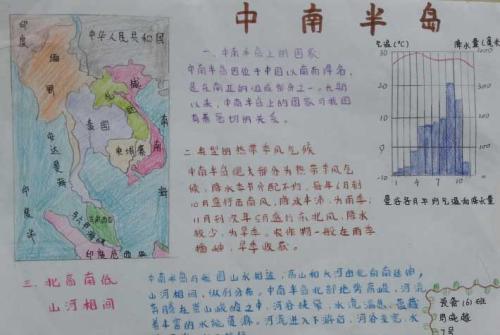 中南半岛
印度
中华人民共和国
缅甸
老挝
越南
泰国
柬埔寨
安达曼海
南海
印度洋
马六甲海峡
马来西亚
一.中南半岛上的国家
中南半岛因位于中国以南而得名,
是东南亚的组成部分之一。长期
以来,中南半岛上的国家与我国
有着密切的关系。
二.典型的热带季风气候
中南半岛绝大部分为热带季风气
候,降水季节分配不均,每年6月到
10月盛行西南风,降水丰沛,为雨季;
11月到次年5月盛行东北风,降水
较少,为旱季。农作物一般在雨季
播种,旱季收获。
气温(℃)
降水量(毫米
曼谷各月平均气温和降水量
三.北高南低
山河相间
中南半岛与我国山水相连,高山和大河由北向南延伸,
山河相间,纵列分布。中南半岛北部地势高峻,河流
奔腾在崇山峻岭之中,河谷狭窄,水流湍急,蕴藏
着丰富的水能资源。河流进入下游后,河谷变宽,水
(6)班